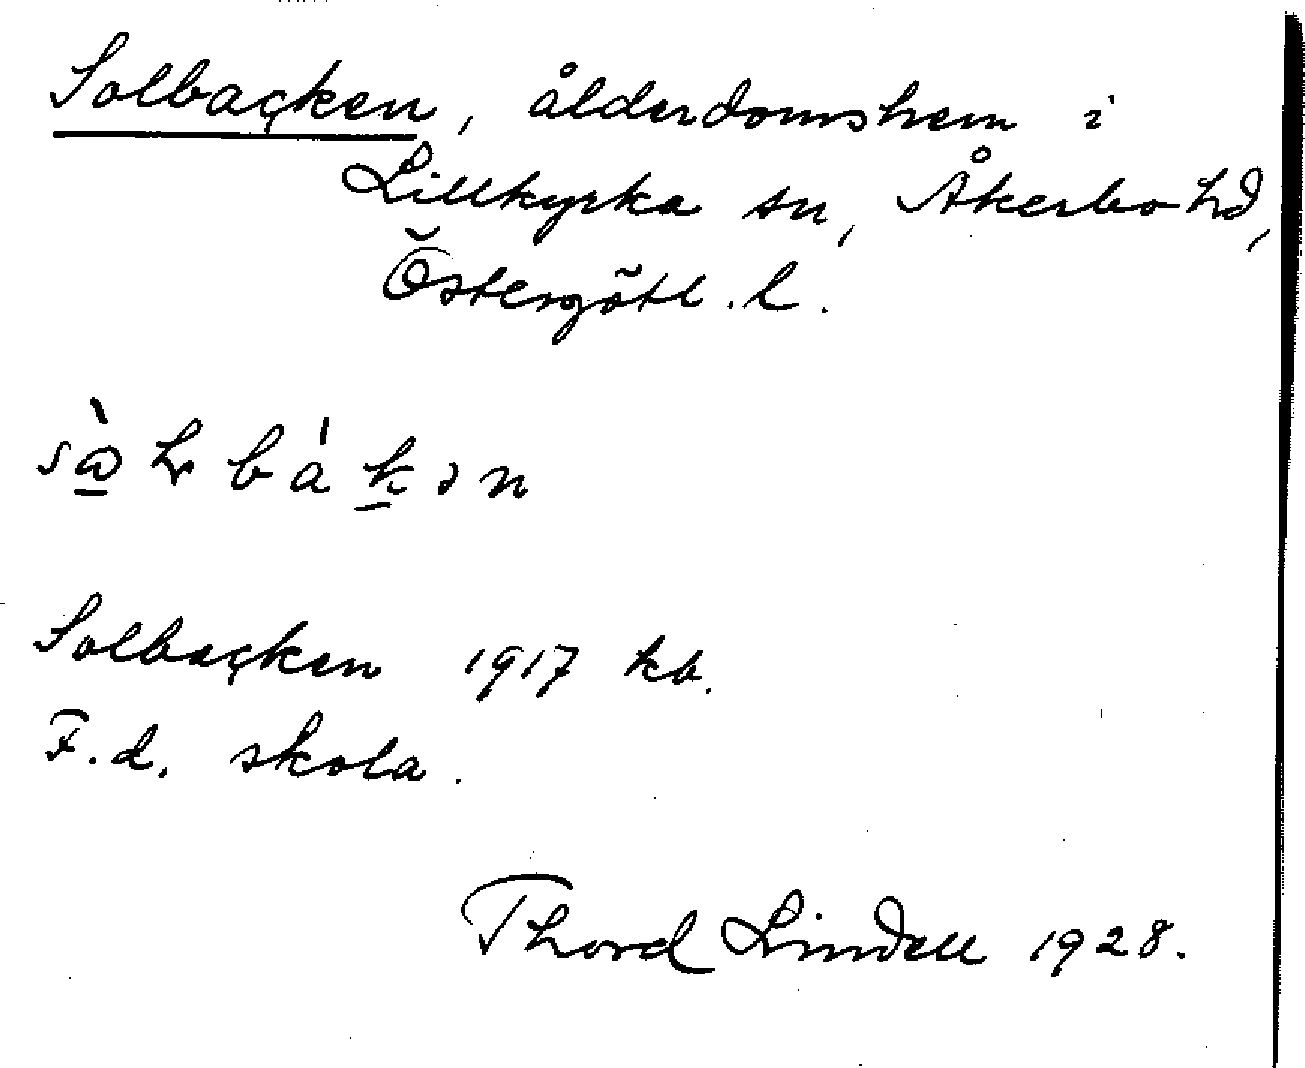 Solbacken, ålderdomshem i
Lillkyrka sn, Åkerbo hd,
Östergötl. l.
Solbacken 1917 kb.
F.d. skola.
Thord Lindell 1928.